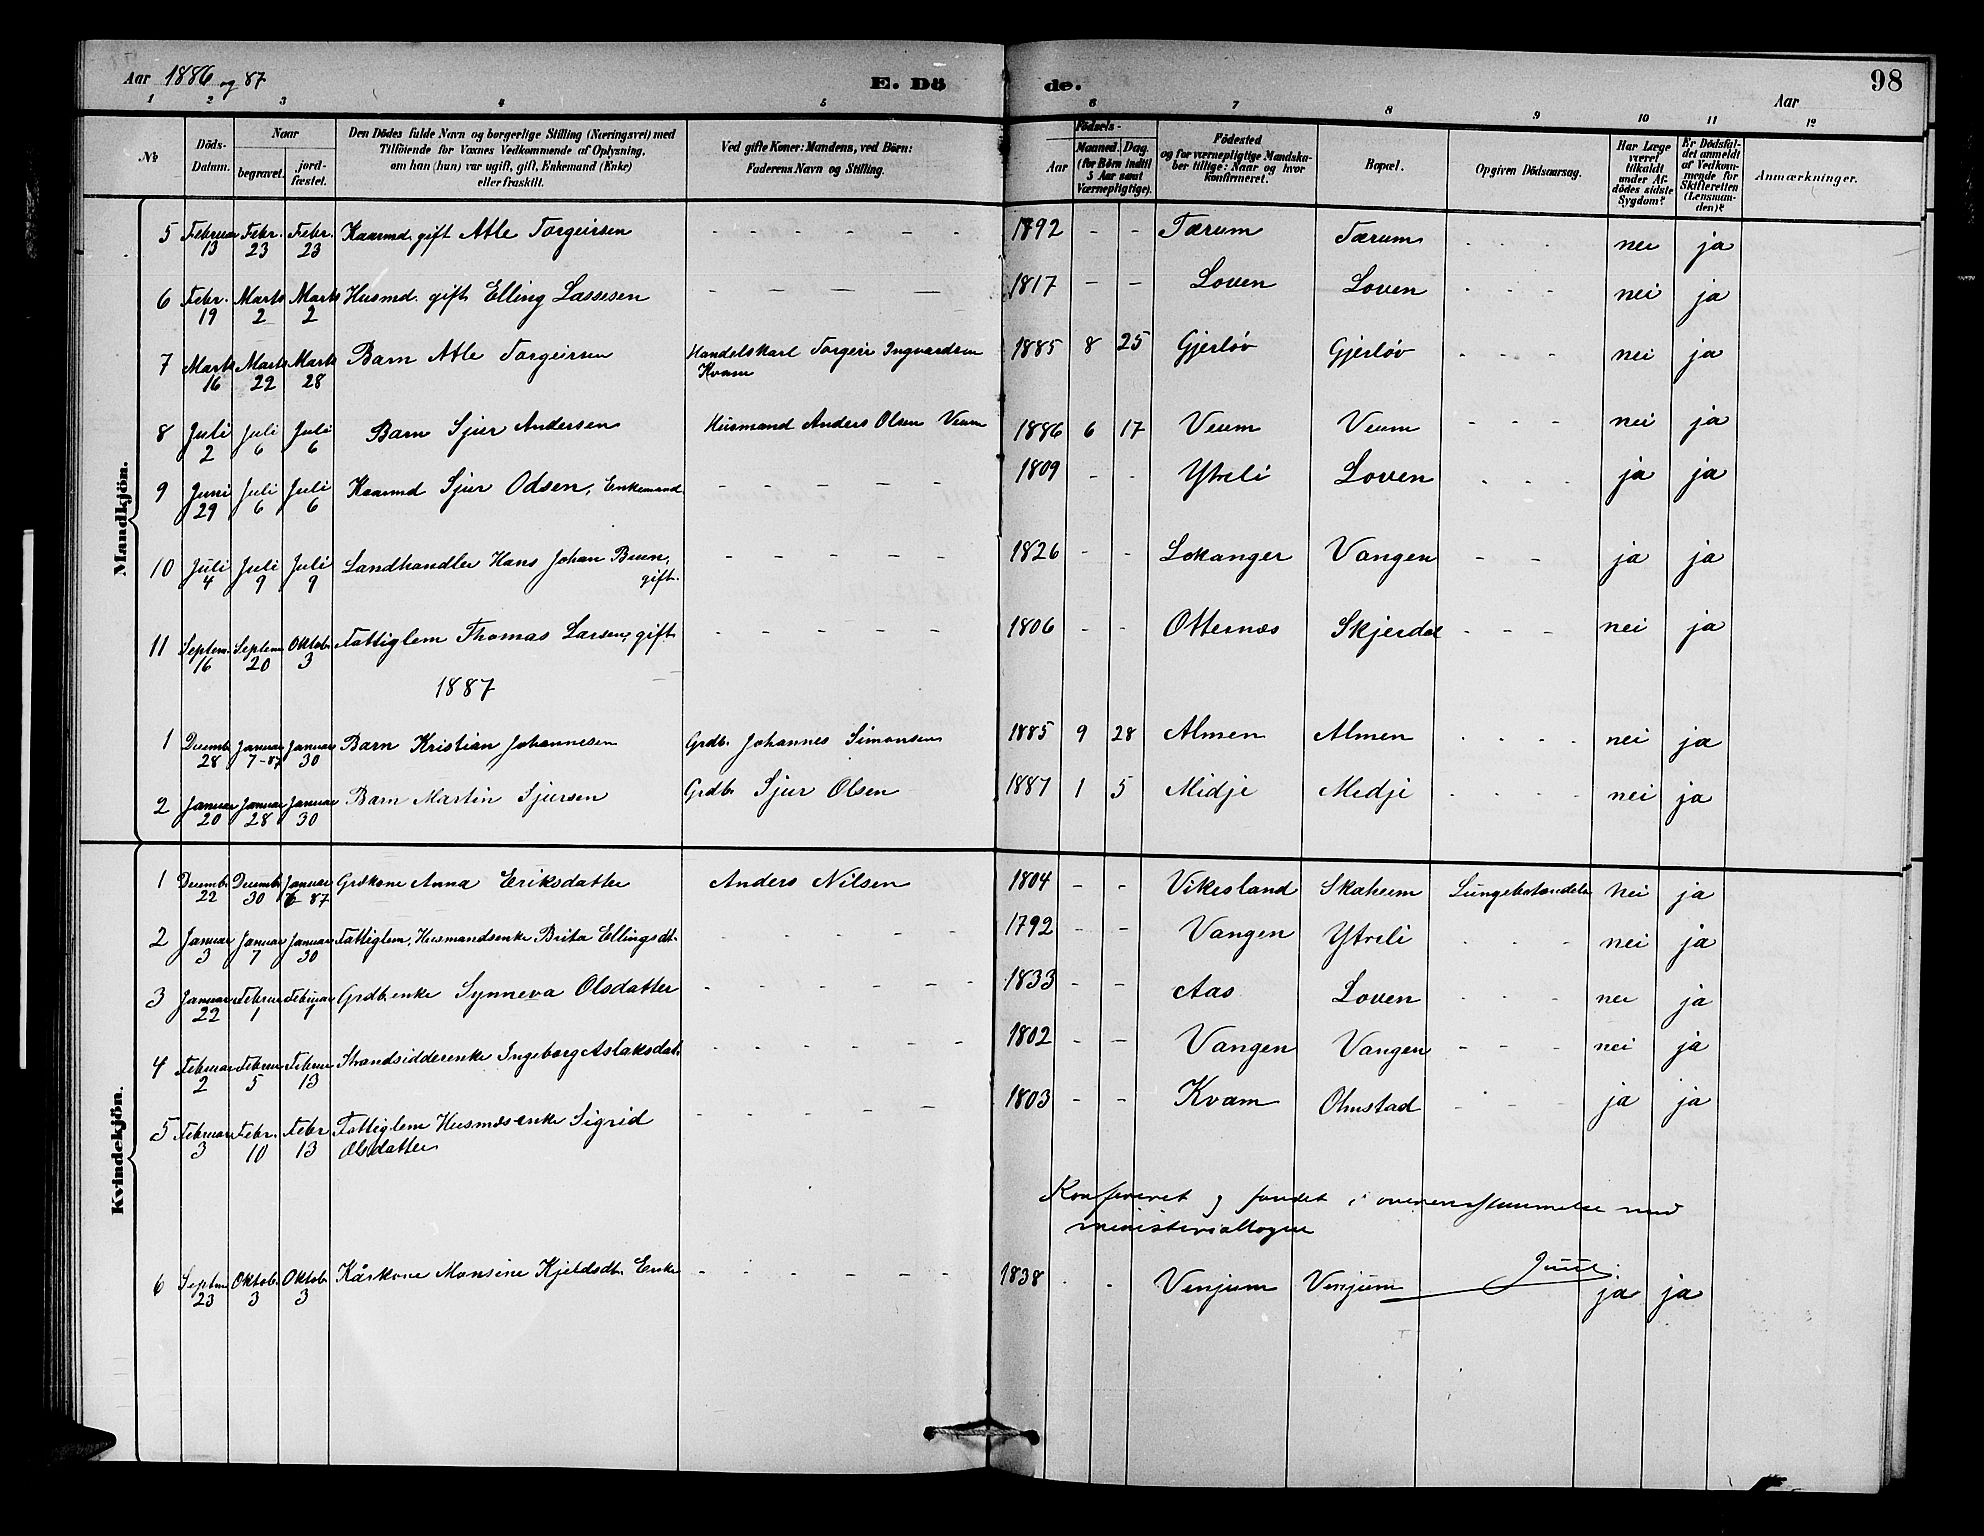 Aar 1886 og 87 E. Dö de. Aar 98
1 2 3 4 5 6 7 8 9 10 11 12
№ Döds-Datum. Naar begravet. jordfæstet. Den Dödes fulde Navn og borgerlige Stilling (Næringsvei) med Tilföiende for Voxnes Vedkommende af Oplysning, om han (hun) var ugift, gift, Enkemand (Enke) eller fraskilt. Ved gifte Koner: Mandens, ved Börn: Faderens Navn og Stilling. Födsels- Aar Maaned. Dag. (for Börn indtil 3 Aar samt Værnepligtige). Födested og for værnepligtige Mandskaber tillige: Naar og hvor konfirmeret. Bopæl. Opgiven Dödsaarsag. Har Læge været tilkaldt under Afdödes sidste Sygdom? Er Dödsfaldet anmeldt af Vedkommende for Skifteretten (Lensmanden)? Anmærkninger.
Mandkjön.
5 Februar 13 Febr. 23 Febr. 23 Kaarmd. gift Atle Torgeirsen - - - - - - 1792 - - Tærum Tærum - - - nei ja
6 Febr. 19 Marts 2 Marts 2 Husmd. gift Elling Lassesen - - - - 1817 - - Loven Loven - - - nei ja
7 Marts 16 Marts 22 Marts 28 Barn Atle Torgeirsen Handelskarl Torgeir Ingvardsen Kvam 1885 8 25 Gjerløv Gjerløv - - - - nei ja
8 Juli 2 Juli 6 Juli 6 Barn Sjur Andersen Husmand Anders Olsen Veum 1886 6 17 Veum Veum - - - nei ja
9 Juni 29 Juli 6 Juli 6 Kaarmd Sjur Odsen, Enkemand - - - - - 1809 - - Ytreli Loven - - - ja ja
10 Juli 4 Juli 9 Juli 9 Landhandler Hans Johan Brun, gift. - - - - - 1826 - - Lekanger Vangen - - - ja ja
11 Septem. 16 Septem 20 Oktob. 3 Fattiglem Thomas Larsen, gift - - - - - 1806 - - Otternæs Skjerdal - - - nei ja
1887
1 Decemb. 28 Januar 7-87 Januar 30 Barn Kristian Johannesen Grdb. Johannes Simonsen 1885 9 28 Almen Almen - - - - nei ja
2 Januar 20 Januar 28 Januar 30 Barn Martin Sjursen Grdb. Sjur Olsen 1887 1 5 Midje Medje - - - - nei ja
Kvindekjön.
1 Decemb. 22 Decemb. 30 Januar 6-87 Grdkone Anna Eriksdatter Anders Nilsen 1804 - - Vikesland Skaheim Lungebetændelse nei ja
2 Januar 3 Januar 7 Januar 30 Fattiglem, Husmandsenke Brita Ellingsdt. - - - - - 1792 - - Vangen Ytreli - - - nei ja
3 Januar 22 Februar 1 Februar 1 Grdb.enke Synneva Olsdatter - - - - - - 1833 - - Aas Loven - - - nei ja
4 Februar 2 Februar 5 Februar 13 Strandsidderenke Ingeborg Aslaksdat. - - - - - - 1802 - - Vangen Vangen - - - nei ja
5 Februar 3 Febr. 10 Febr 13 Fattiglem Husmdsenke Sigrid Olsdatter - - - - - 1803 - - Kvam Olmstad - - - ja ja
Konfereret og fundet i overensstemmelse med
ministerialbogen
Juul.
6 Septem 23 Oktob. 3 Oktob. 3 Kårkone Monsine Kjeldsdt. Enke - - - - - - 1838 - - Venjum Venjum ja ja